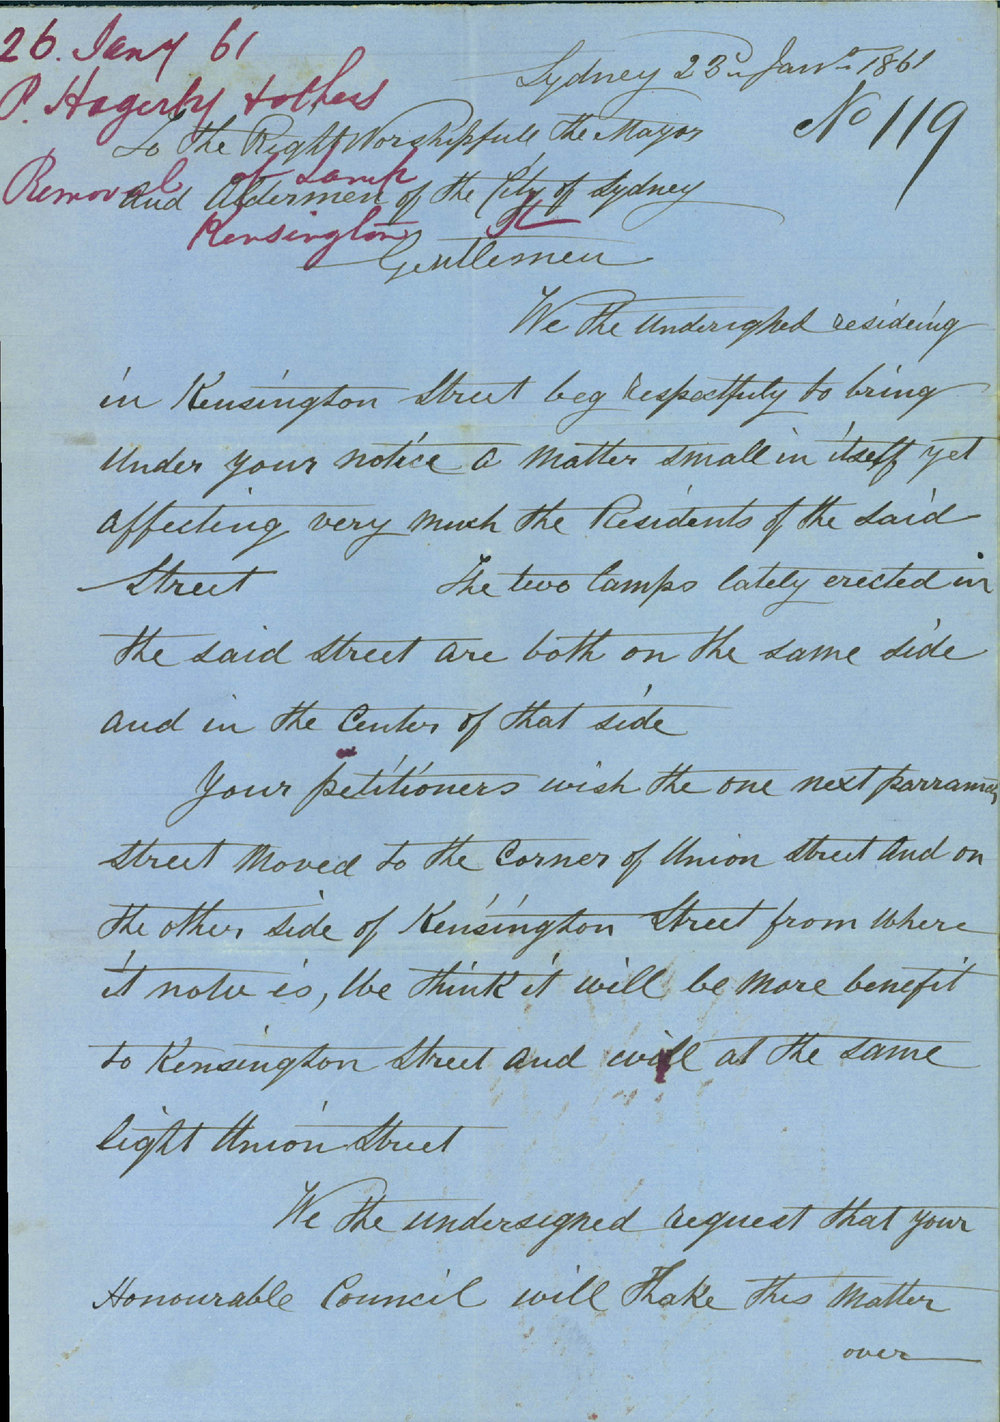 26. Jany 61
P. Hagerty & others
Removal of Lamp
Kensington St
Sydney 23rd Jany 1861
No 119
To the Right Worshipfull the Mayor
and Aldermen of the City of Sydney
Gentlemen
We the Undersighed resideing
in Kensington Street beg respectfuly to bring
Under your notice a matter small in itself yet
affecting very much the Residents of the said
Street The two lamps lately erected in
the said street are both on the same side
and in the Center of that side
Your petitioners wish the one next parramatta
street moved to the Corner of Union street and on
the other side of Kensington Street from where
it now is, We think it will be more benefit
to Kensington Street and will at the same
light Union Street
We the undersigned request that your
Honourable Council will Thake this matter
over